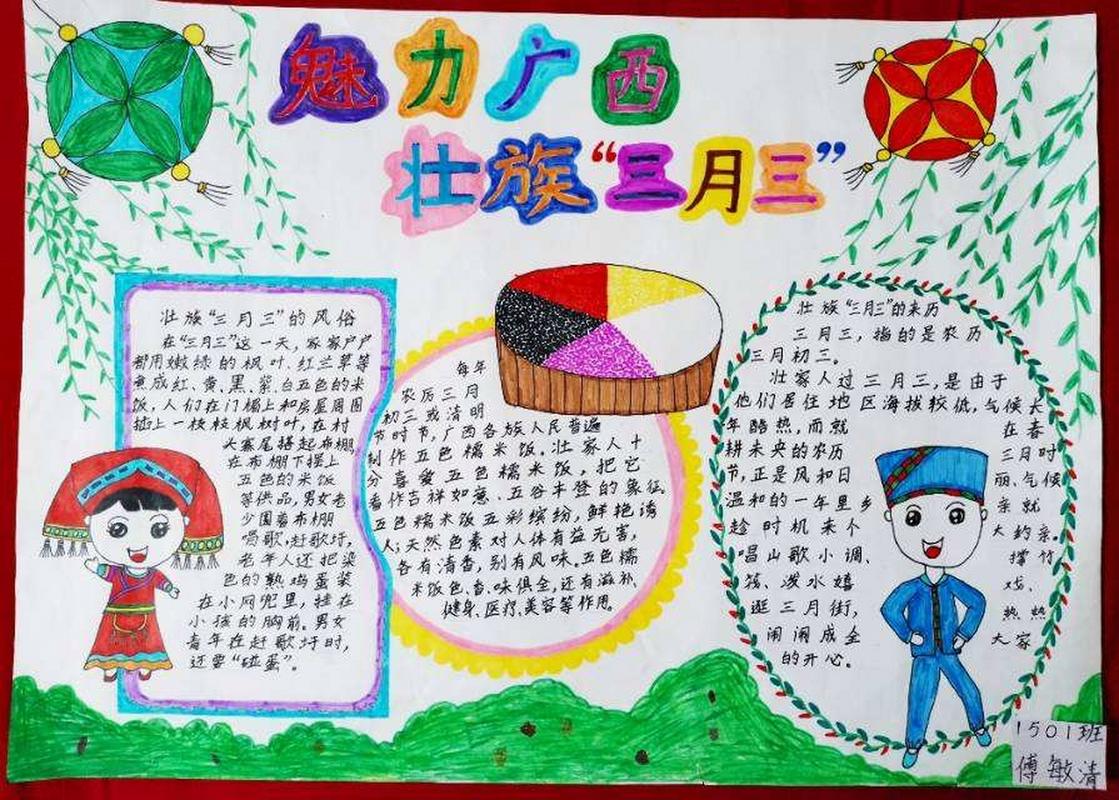 魅力广西
壮族“三月三”
壮族“三月三”的风俗
在“三月三”这一天，家家户户
都用嫩绿的枫叶、红兰草等
煮成红、黄、黑、紫、白五色的米
饭，人们在门楣上和房屋周围
插上一枝枝枫树叶，在村
头寨尾搭起布棚，
在布棚下摆上
五色的米饭
等供品，男女老
少围着布棚
唱歌，赶歌圩，
老年人还把染
色的熟鸡蛋装
在小网兜里，挂在
小孩的胸前。男女
青年在赶歌圩时，
还要“碰蛋”。
每年
农历三月
初三或清明
节时节，广西各族人民普遍
制作五色糯米饭。壮家人十
分喜爱五色糯米饭，把它
看作吉祥如意、五谷丰登的象征。
五色糯米饭五彩缤纷，鲜艳诱
人；天然色素对人体有益无害，
各有清香，别有风味。五色糯
米饭色、香、味俱全，还有滋补、
健身、医疗、美容等作用。
壮族“三月三”的来历
三月三，指的是农历
三月初三。
壮家人过三月三，是由于
他们居住地区海拔较低，气候长
年酷热，而就 在春
耕未央的农历 三月时
节，正是风和日 丽、气候
温和的一年里乡 亲就
趁时机来个 大约亲。
唱山歌小调、 撑竹
筏、泼水嬉 戏、
逛三月街， 热热
闹闹成全 大家
的开心。
1501班
傅敏清